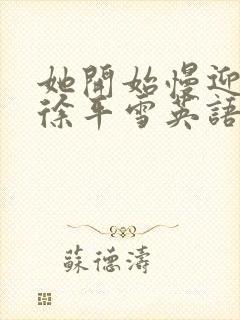 她開始慢迎
徐平雪英語
蘇德濤